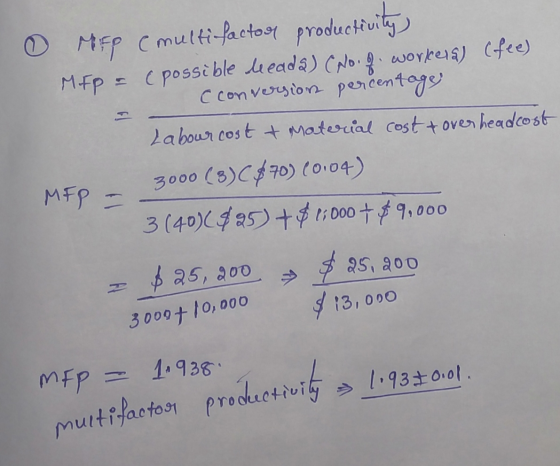 ① MFP (multifactor productivity)
MFP = (possible leads) (No. of. workers) (fee)
(conversion percentage)
=
Labour cost + Material cost + overhead cost
MFP = 3000 (3) ($70) (0.04)
3 (40) ($25) + $1,000 + $9,000
= $25,200 ⇒ $25,200
3000+10,000 $13,000
MFP = 1.938.
multifactor productivity ⇒ 1.93±0.01.